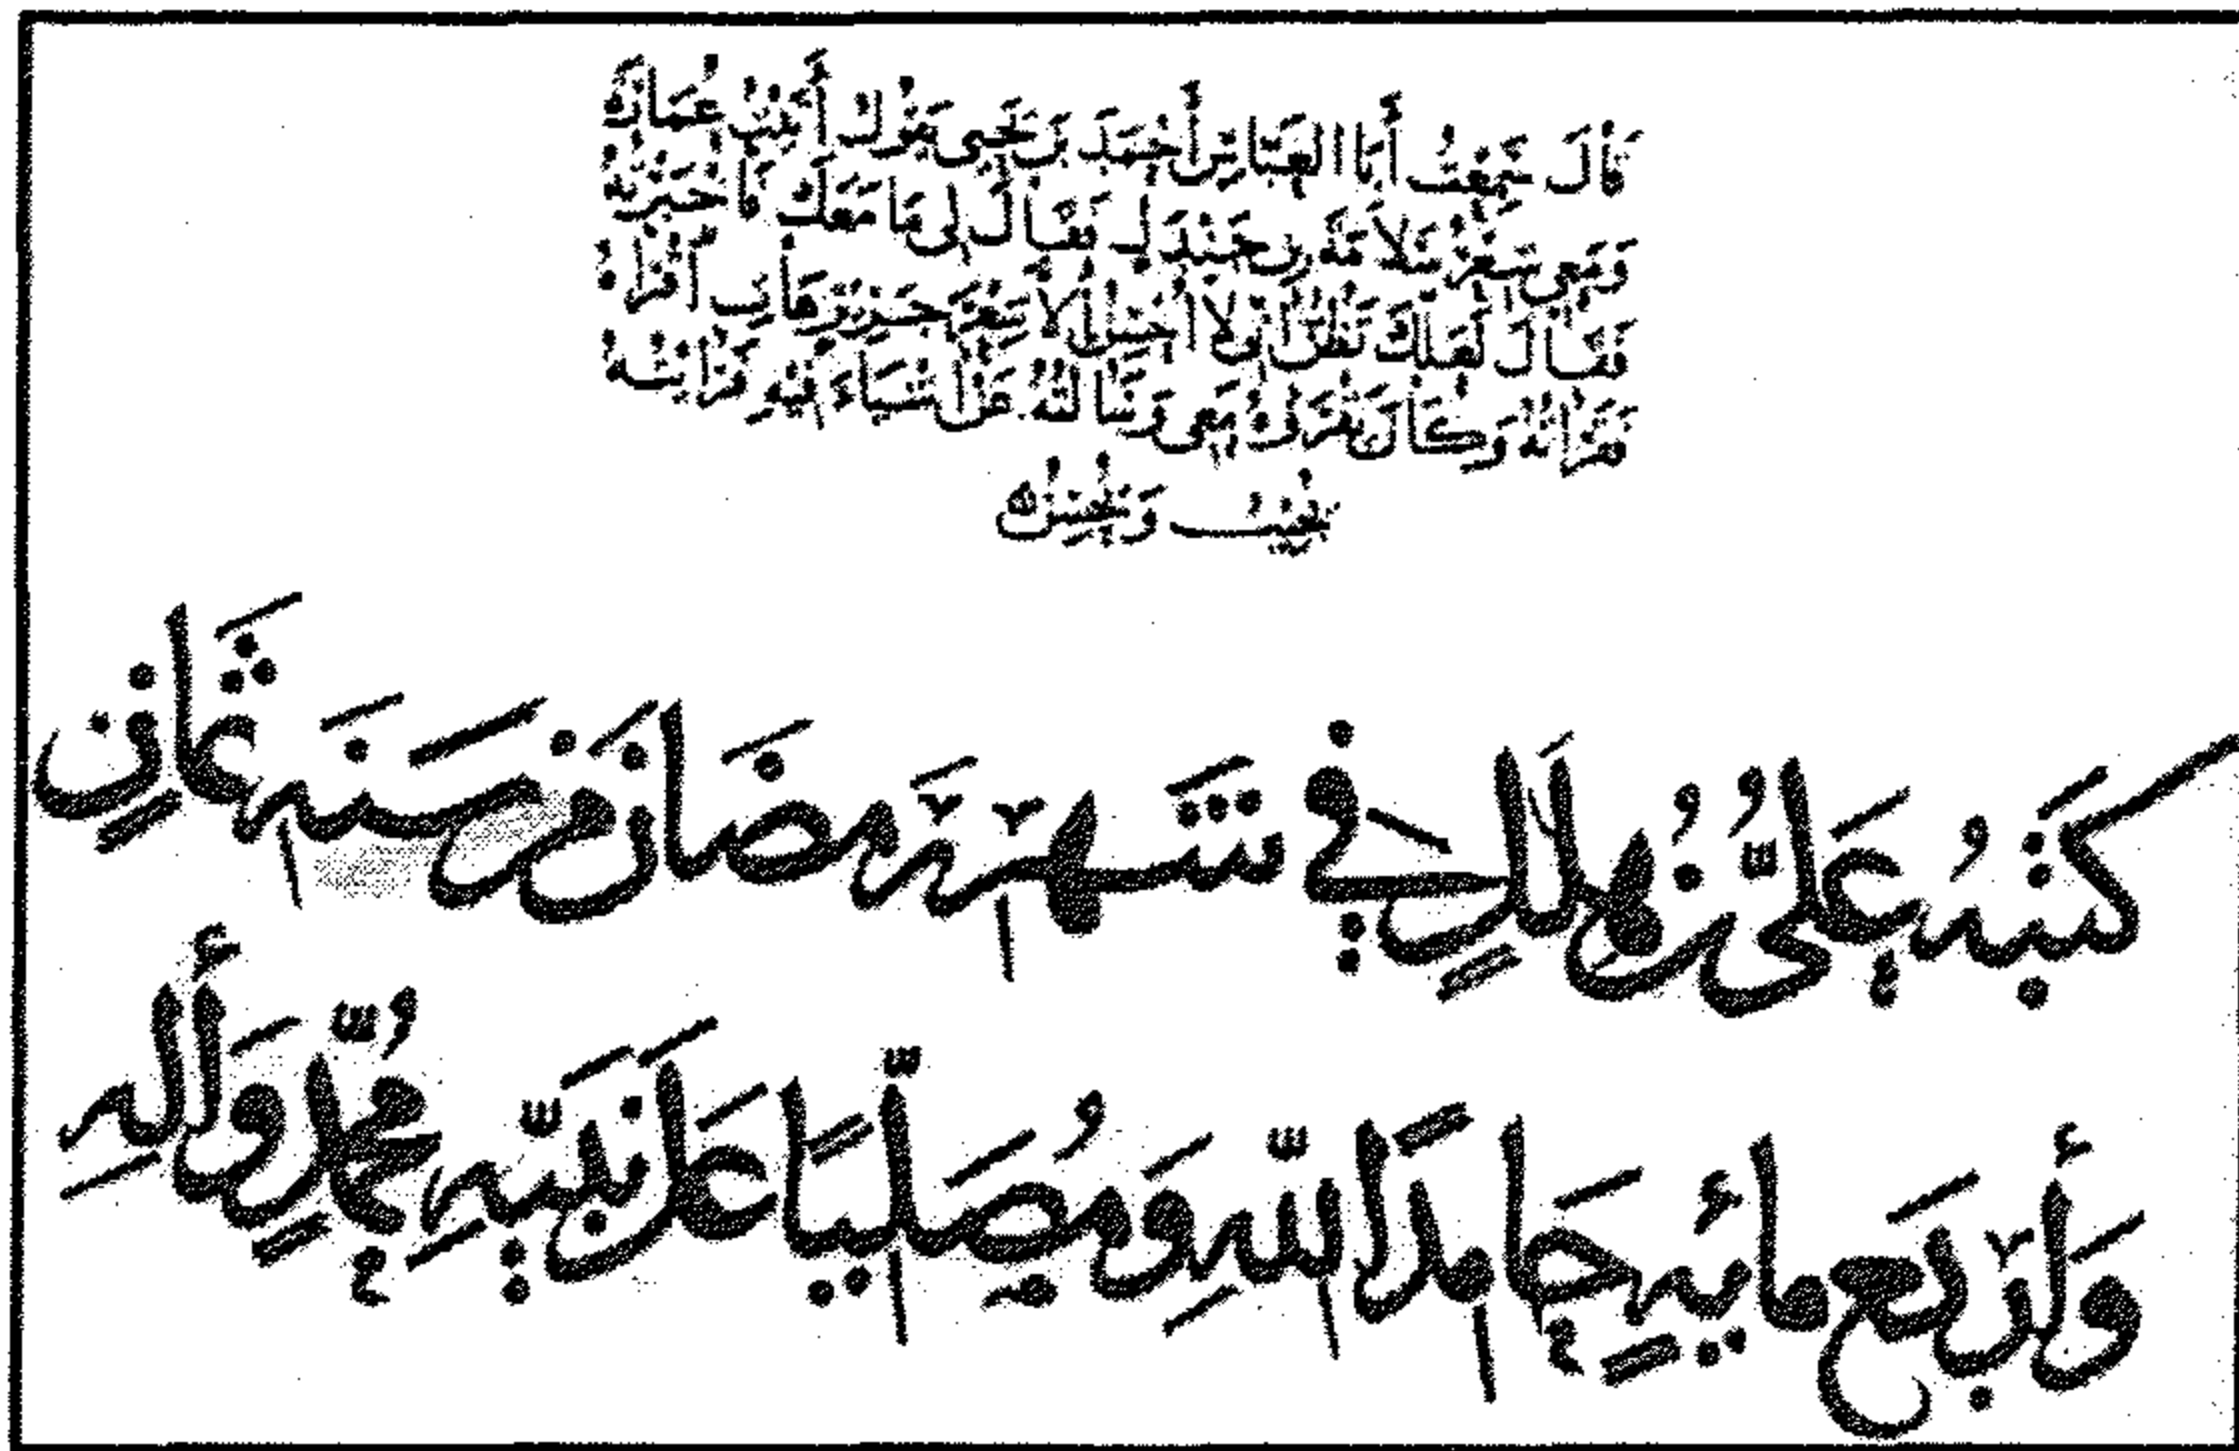 قَالَ سَمِعْتُ أَبَا العَبَّاسِ أَحْمَدَ بْنَ يَحْيَى يَقُولُ أَتَيْتُ عُمَارَةَ
وَمَعِي شِعْرُ سَلَامَةَ بنِ جَنْدَلٍ فَقَالَ لِي مَا مَعَكَ فَأَخْبَرْتُهُ
فَقَالَ لَعَلَّكَ تَظُنُّ أَنِّي لَا أُحْسِنُ إِلَّا شِعْرَ جَرِيرٍ هَاتِ اقْرَأْهُ
فَقَرَأْتُهُ وَكَانَ يَقْرَأُ مَعِي وَسَأَلْتُهُ عَنْ أَشْيَاءَ فِيهِ فَرَأَيْتُهُ
يُجِيبُ وَيُحْسِنُ
كَتَبَهُ عَلِيُّ بنُ هِلَالٍ فِي شَهْرِ رَمَضَانَ مِنْ سَنَةِ ثَمَانٍ
وَأَرْبَعِ مائِةٍ حَامِدًا لِلّهِ وَمُصَلِّيًا عَلَى نَبِيِّهِ مُحَمَّدٍ وَأَلِهِ